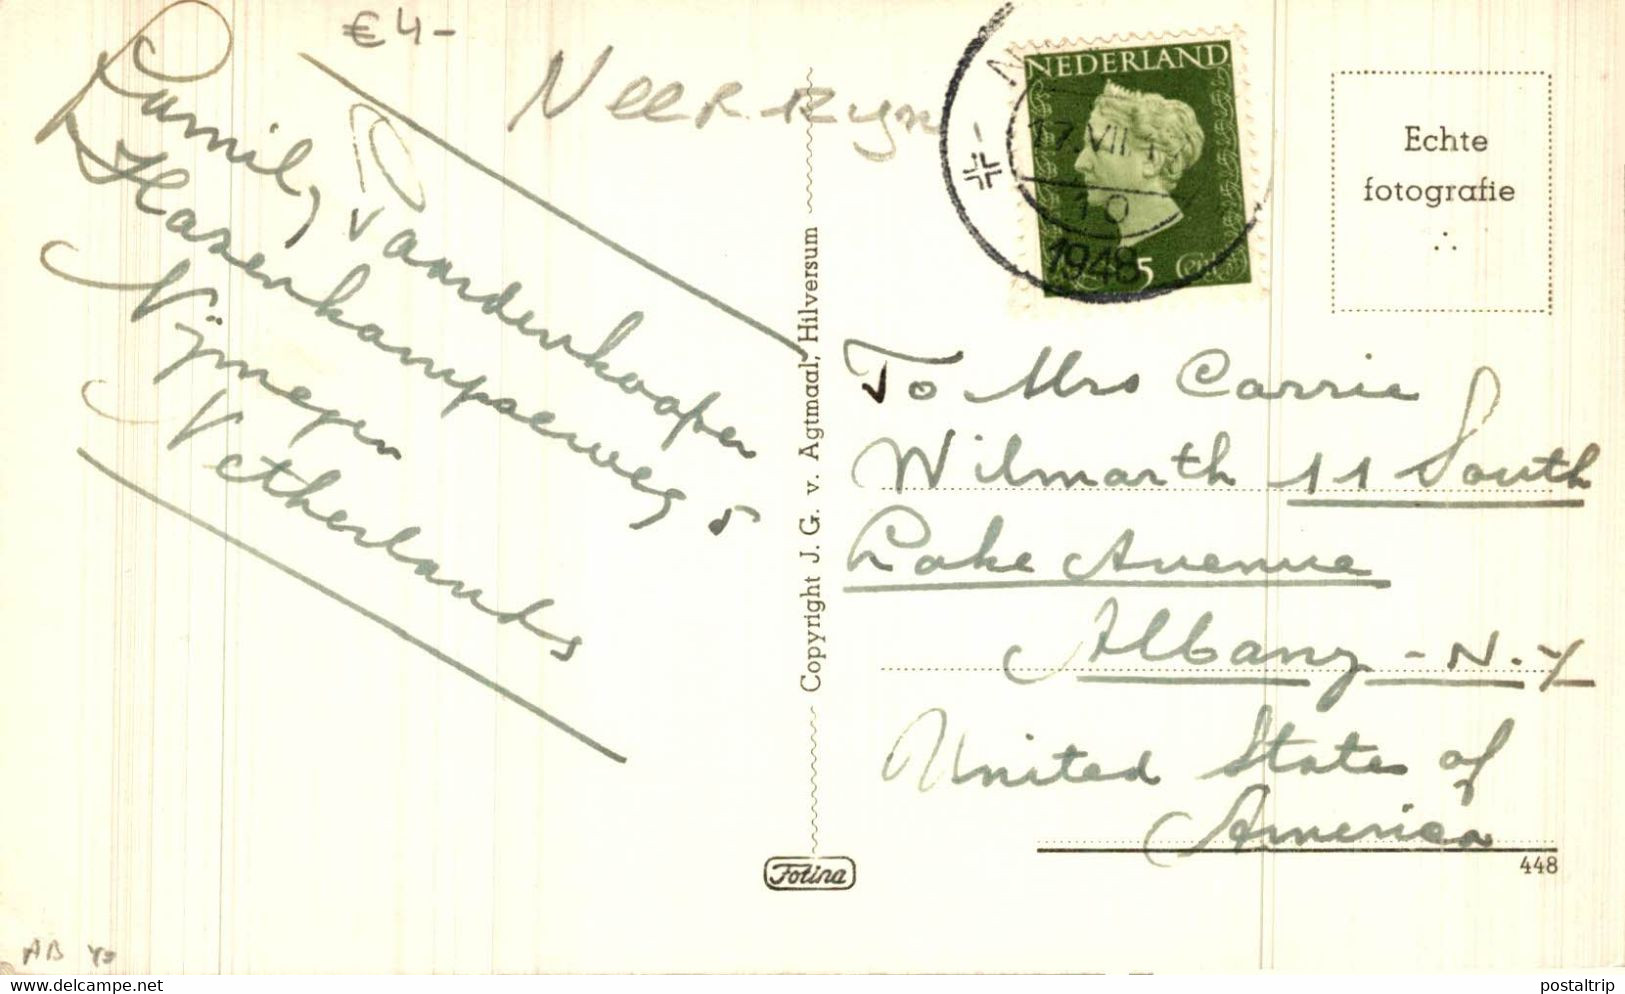 € 4-
NEERRIJN
Family Paardenkooper
Hazenkampseweg 5
Nijmegen
Netherlands
Copyright J. G. v. Agtmaal, Hilversum
NEDERLAND
17.VII
10
1948
5 Cent
Echte
fotografie
To Mrs Carrie
Wilmarth 11 South
Lake Avenue
Albany - N.Y
United States of
America
Fotina
448
AB
www.delcampe.net
postaltrip